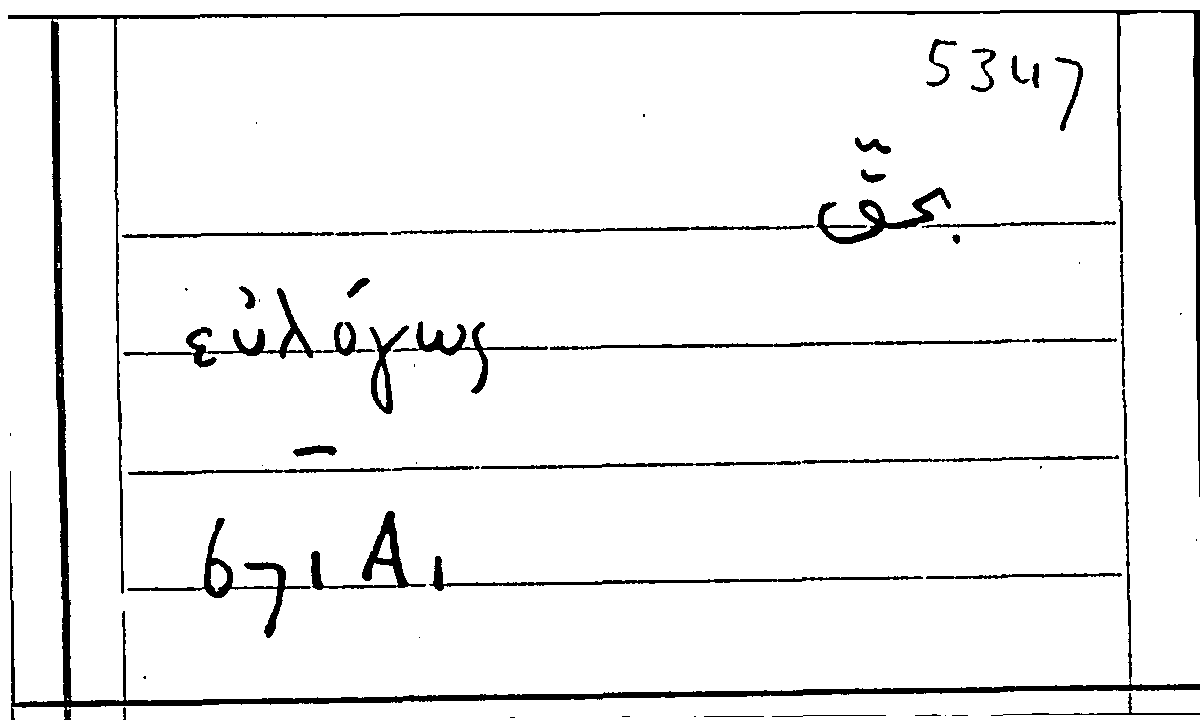 5347
بحقّ
εὐλόγως
–
671 A1